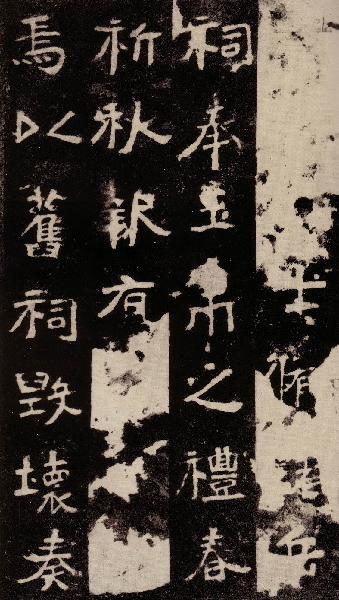 士脩岳
祠奉玉帛之禮春
祈秋報有
焉以舊祠毀壞奏